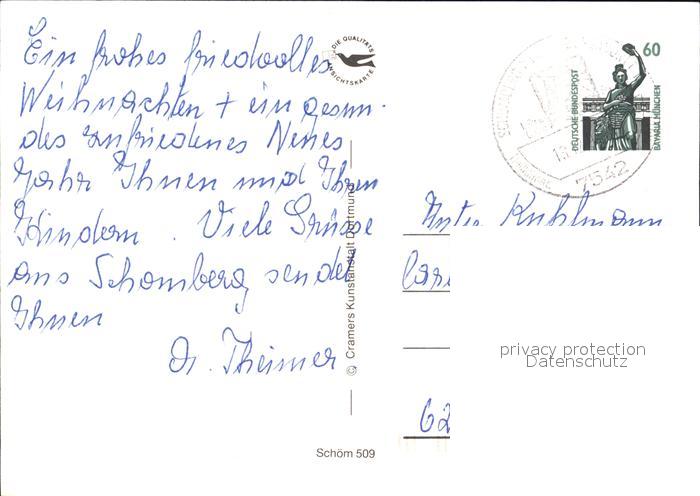 Ein frohes friedvolles
Weihnachten + ein gesun-
des zufriedenes Neues
Jahr Ihnen und Ihren
Kindern. Viele Grüsse
aus Schömberg sendet
Ihnen
Dr. Theimer
DIE QUALITÄTS
ANSICHTSKARTE
© Cramers Kunstanstalt Dortmund
Schöm 509
60
DEUTSCHE BUNDESPOST
BAVARIA MÜNCHEN
7542
Kuhlmann
62
privacy protection
Datenschutz